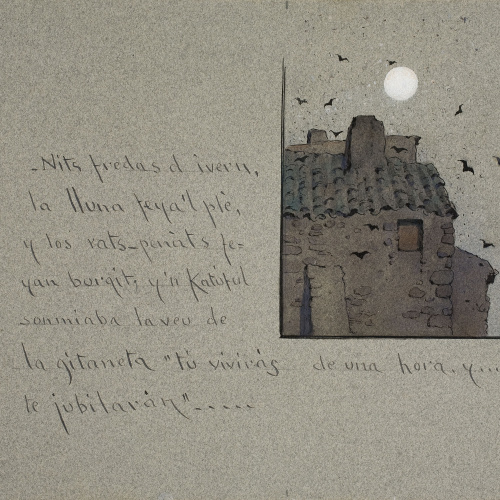 _Nits fredas d ivern,
la lluna feya'l plè,
y los rats_penàts fe=
yan burgit; y'n Katúful
somniaba la veu de
la gitaneta "tú vivirás de una hora. y...
te jubilarán".....